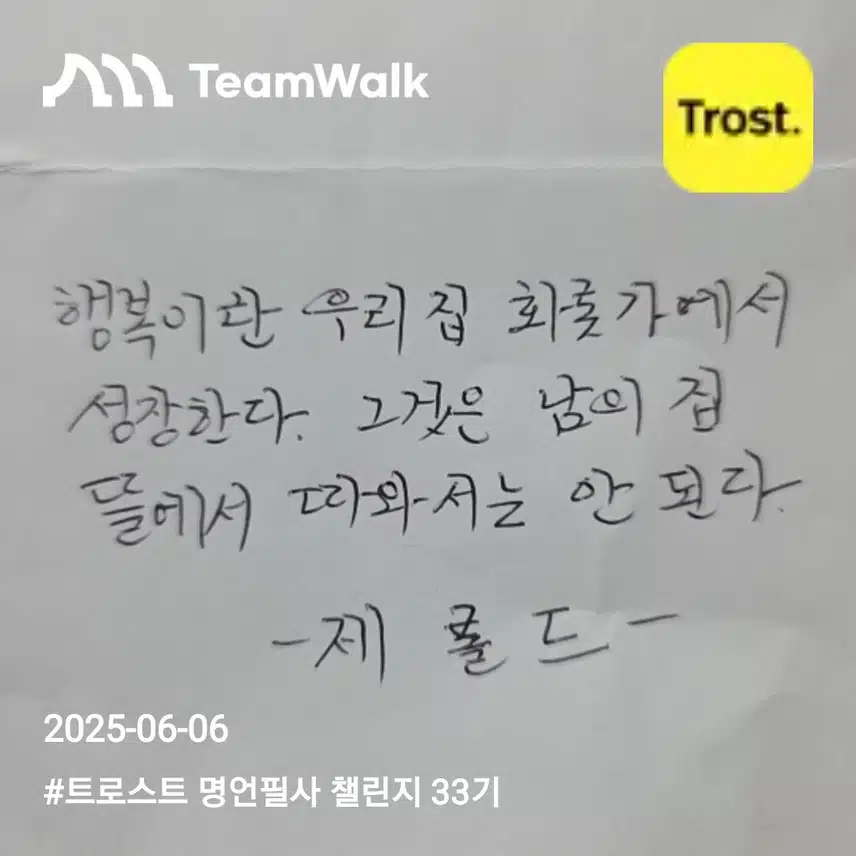 TeamWalk
Trost.
행복이란 우리 집 화롯가에서
성장한다. 그것은 남의 집
뜰에서 따와서는 안 된다.
-제 롤드-
2025-06-06
#트로스트 명언필사 챌린지 33기